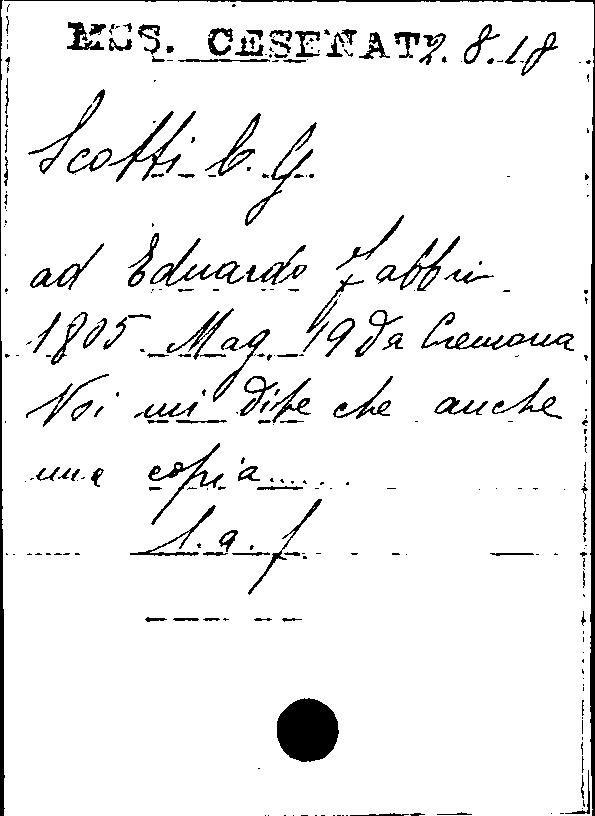 MSS. CESENATI 2.8.18
Scotti C. G.
ad Eduardo Fabbri
1805 Mag. 19 Da Cremona
Voi mi dite che anche
una copia......
l.a.f.